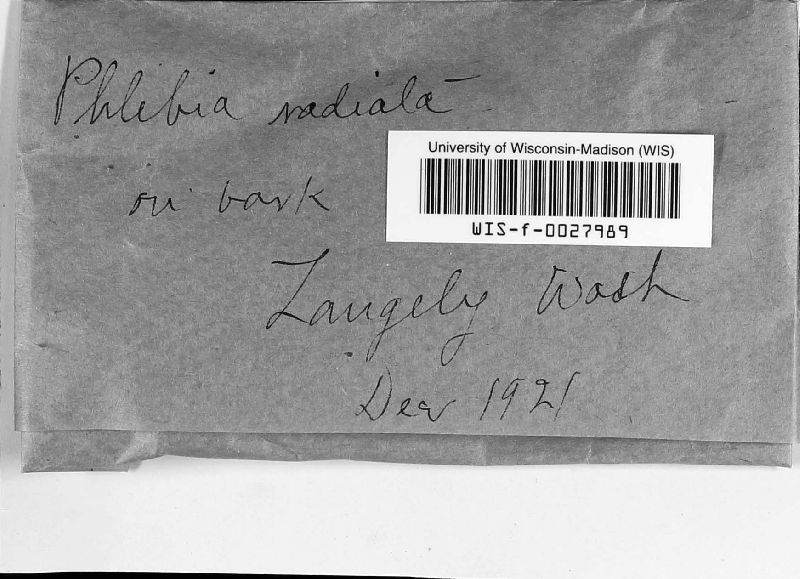 Phlebia radiata
University of Wisconsin-Madison (WIS)
WIS-f-0027989
on bark
Langely Wash
Dec 1921